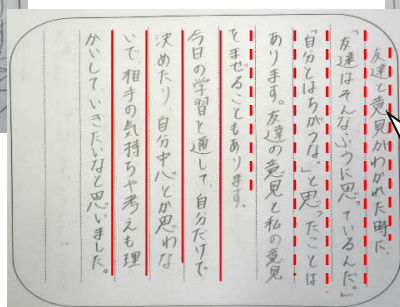 友達と意見がわかれた時に、
「友達はそんなふうに思っているんだ。」
「自分とはちがうな。」と思ったことは
あります。友達の意見と私の意見
をまぜることもあります。
今日の学習を通して、自分だけで
決めたり、自分中心とか思わな
いで、相手の気持ちや考えも理
かいしていきたいなと思いました。